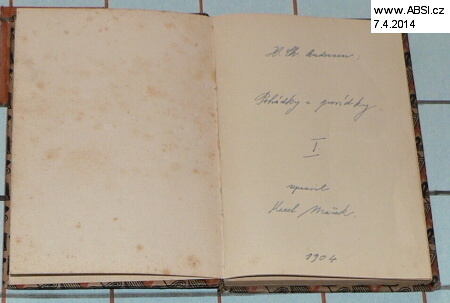 www.ABSI.cz
7.4.2014
H. Ch. Andersen.
Pohádky a povídky.
I.
upravil
Karel Mašek.
1904